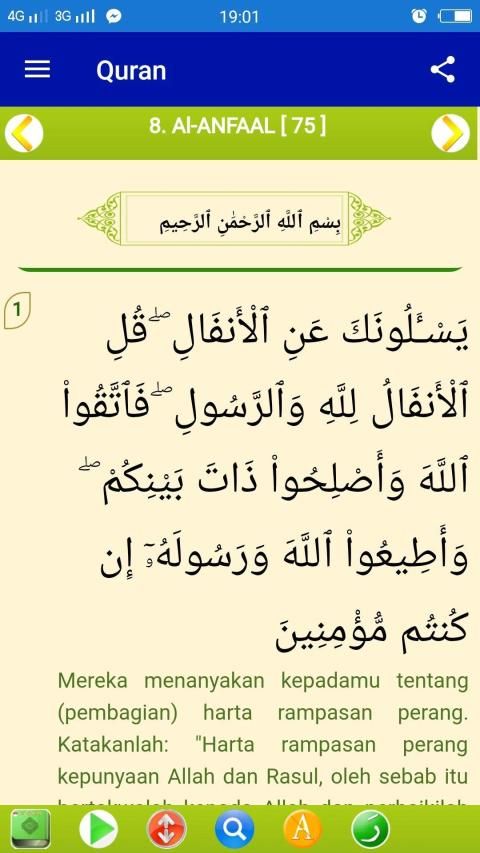 4G 3G 19:01
Quran
8. Al-ANFAAL [ 75 ]
بِسْمِ ٱللَّهِ ٱلرَّحْمَٰنِ ٱلرَّحِيمِ
1
يَسْـَٔلُونَكَ عَنِ ٱلْأَنفَالِ ۖ قُلِ
ٱلْأَنفَالُ لِلَّهِ وَٱلرَّسُولِ ۖ فَٱتَّقُوا۟
ٱللَّهَ وَأَصْلِحُوا۟ ذَاتَ بَيْنِكُمْ ۖ
وَأَطِيعُوا۟ ٱللَّهَ وَرَسُولَهُۥٓ إِن
كُنتُم مُّؤْمِنِينَ
Mereka menanyakan kepadamu tentang
(pembagian) harta rampasan perang.
Katakanlah: "Harta rampasan perang
kepunyaan Allah dan Rasul, oleh sebab itu
A